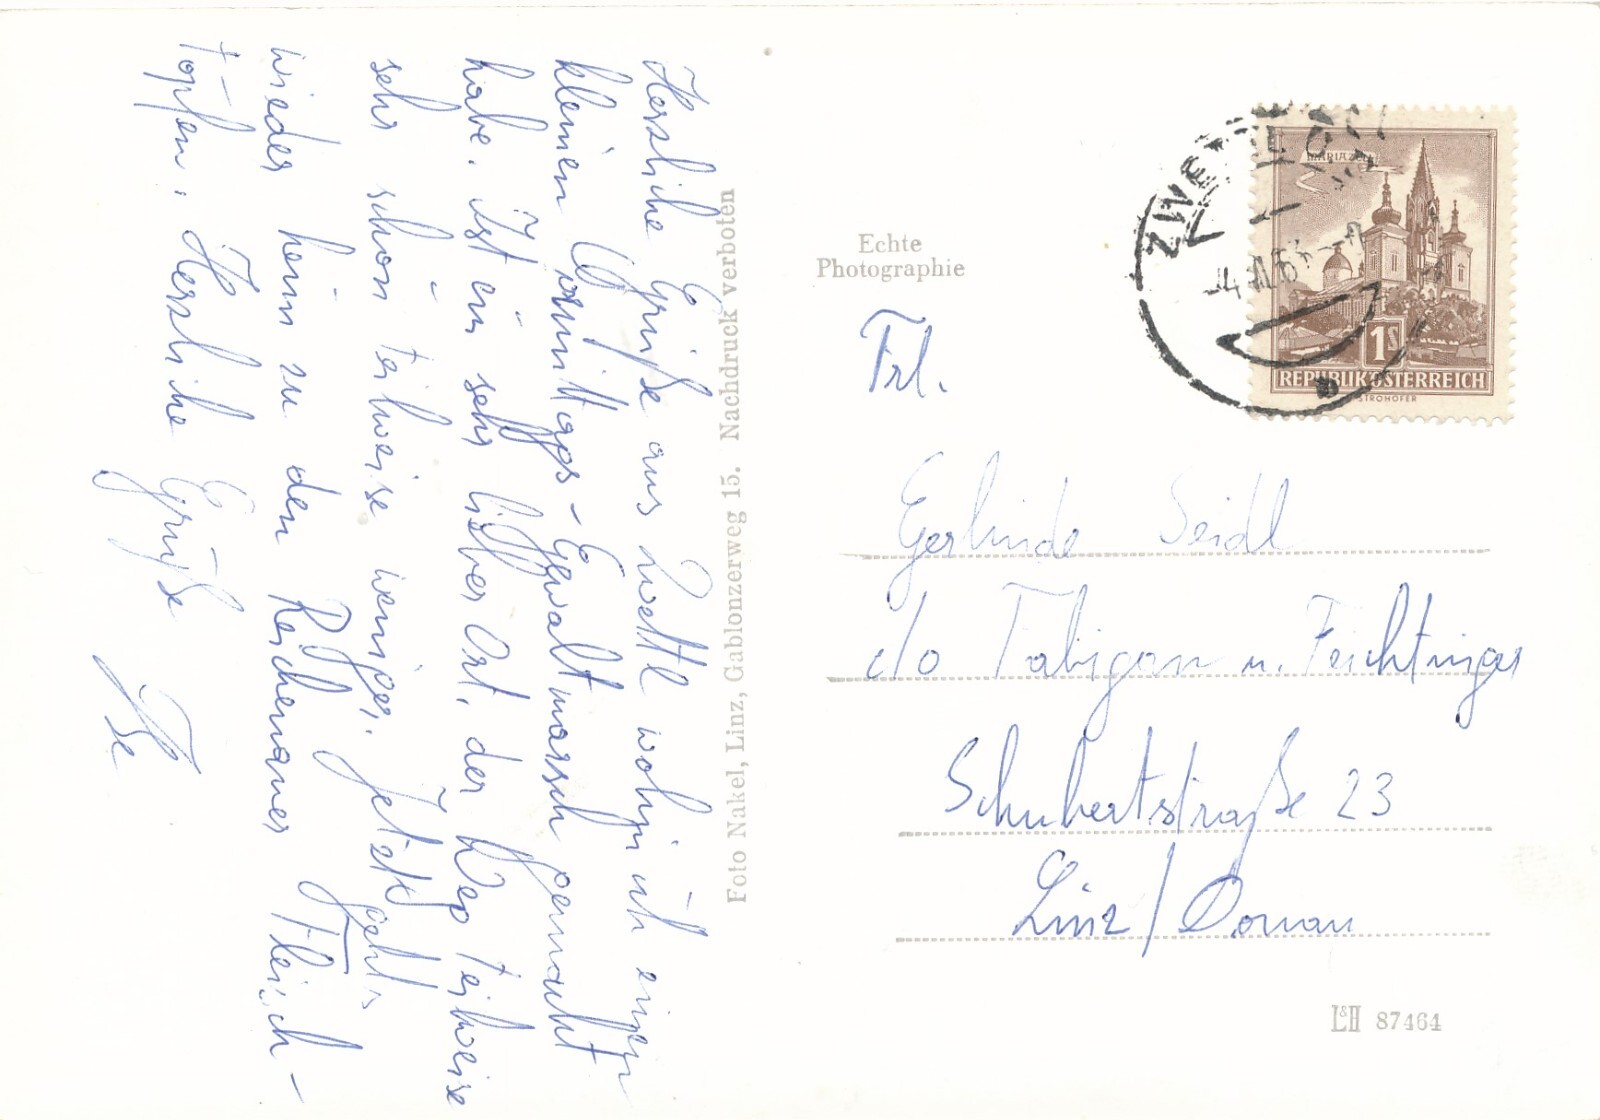 Herzliche Grüße aus Zwettl wohin ich einen
kleinen Vormittags-Gewaltmarsch gemacht
habe. Ist ein sehr lieber Ort, der Weg teilweise
sehr schön teilweise weniger. Jetzt geht's
wieder heim zu den Reichenauer Fleisch-
töpfen. Herzliche Grüße
Ilse
Foto Nakel, Linz, Gablonzerweg 15. Nachdruck verboten
Echte
Photographie
ZWETTL
MARIAZELL
1S
REPUBLIK ÖSTERREICH
STROHOFER
Frl.
Gerlinde Seidl
c/o Tabigan u. Feichtinger
Schubertstraße 23
Linz/Donau
L&H 87464